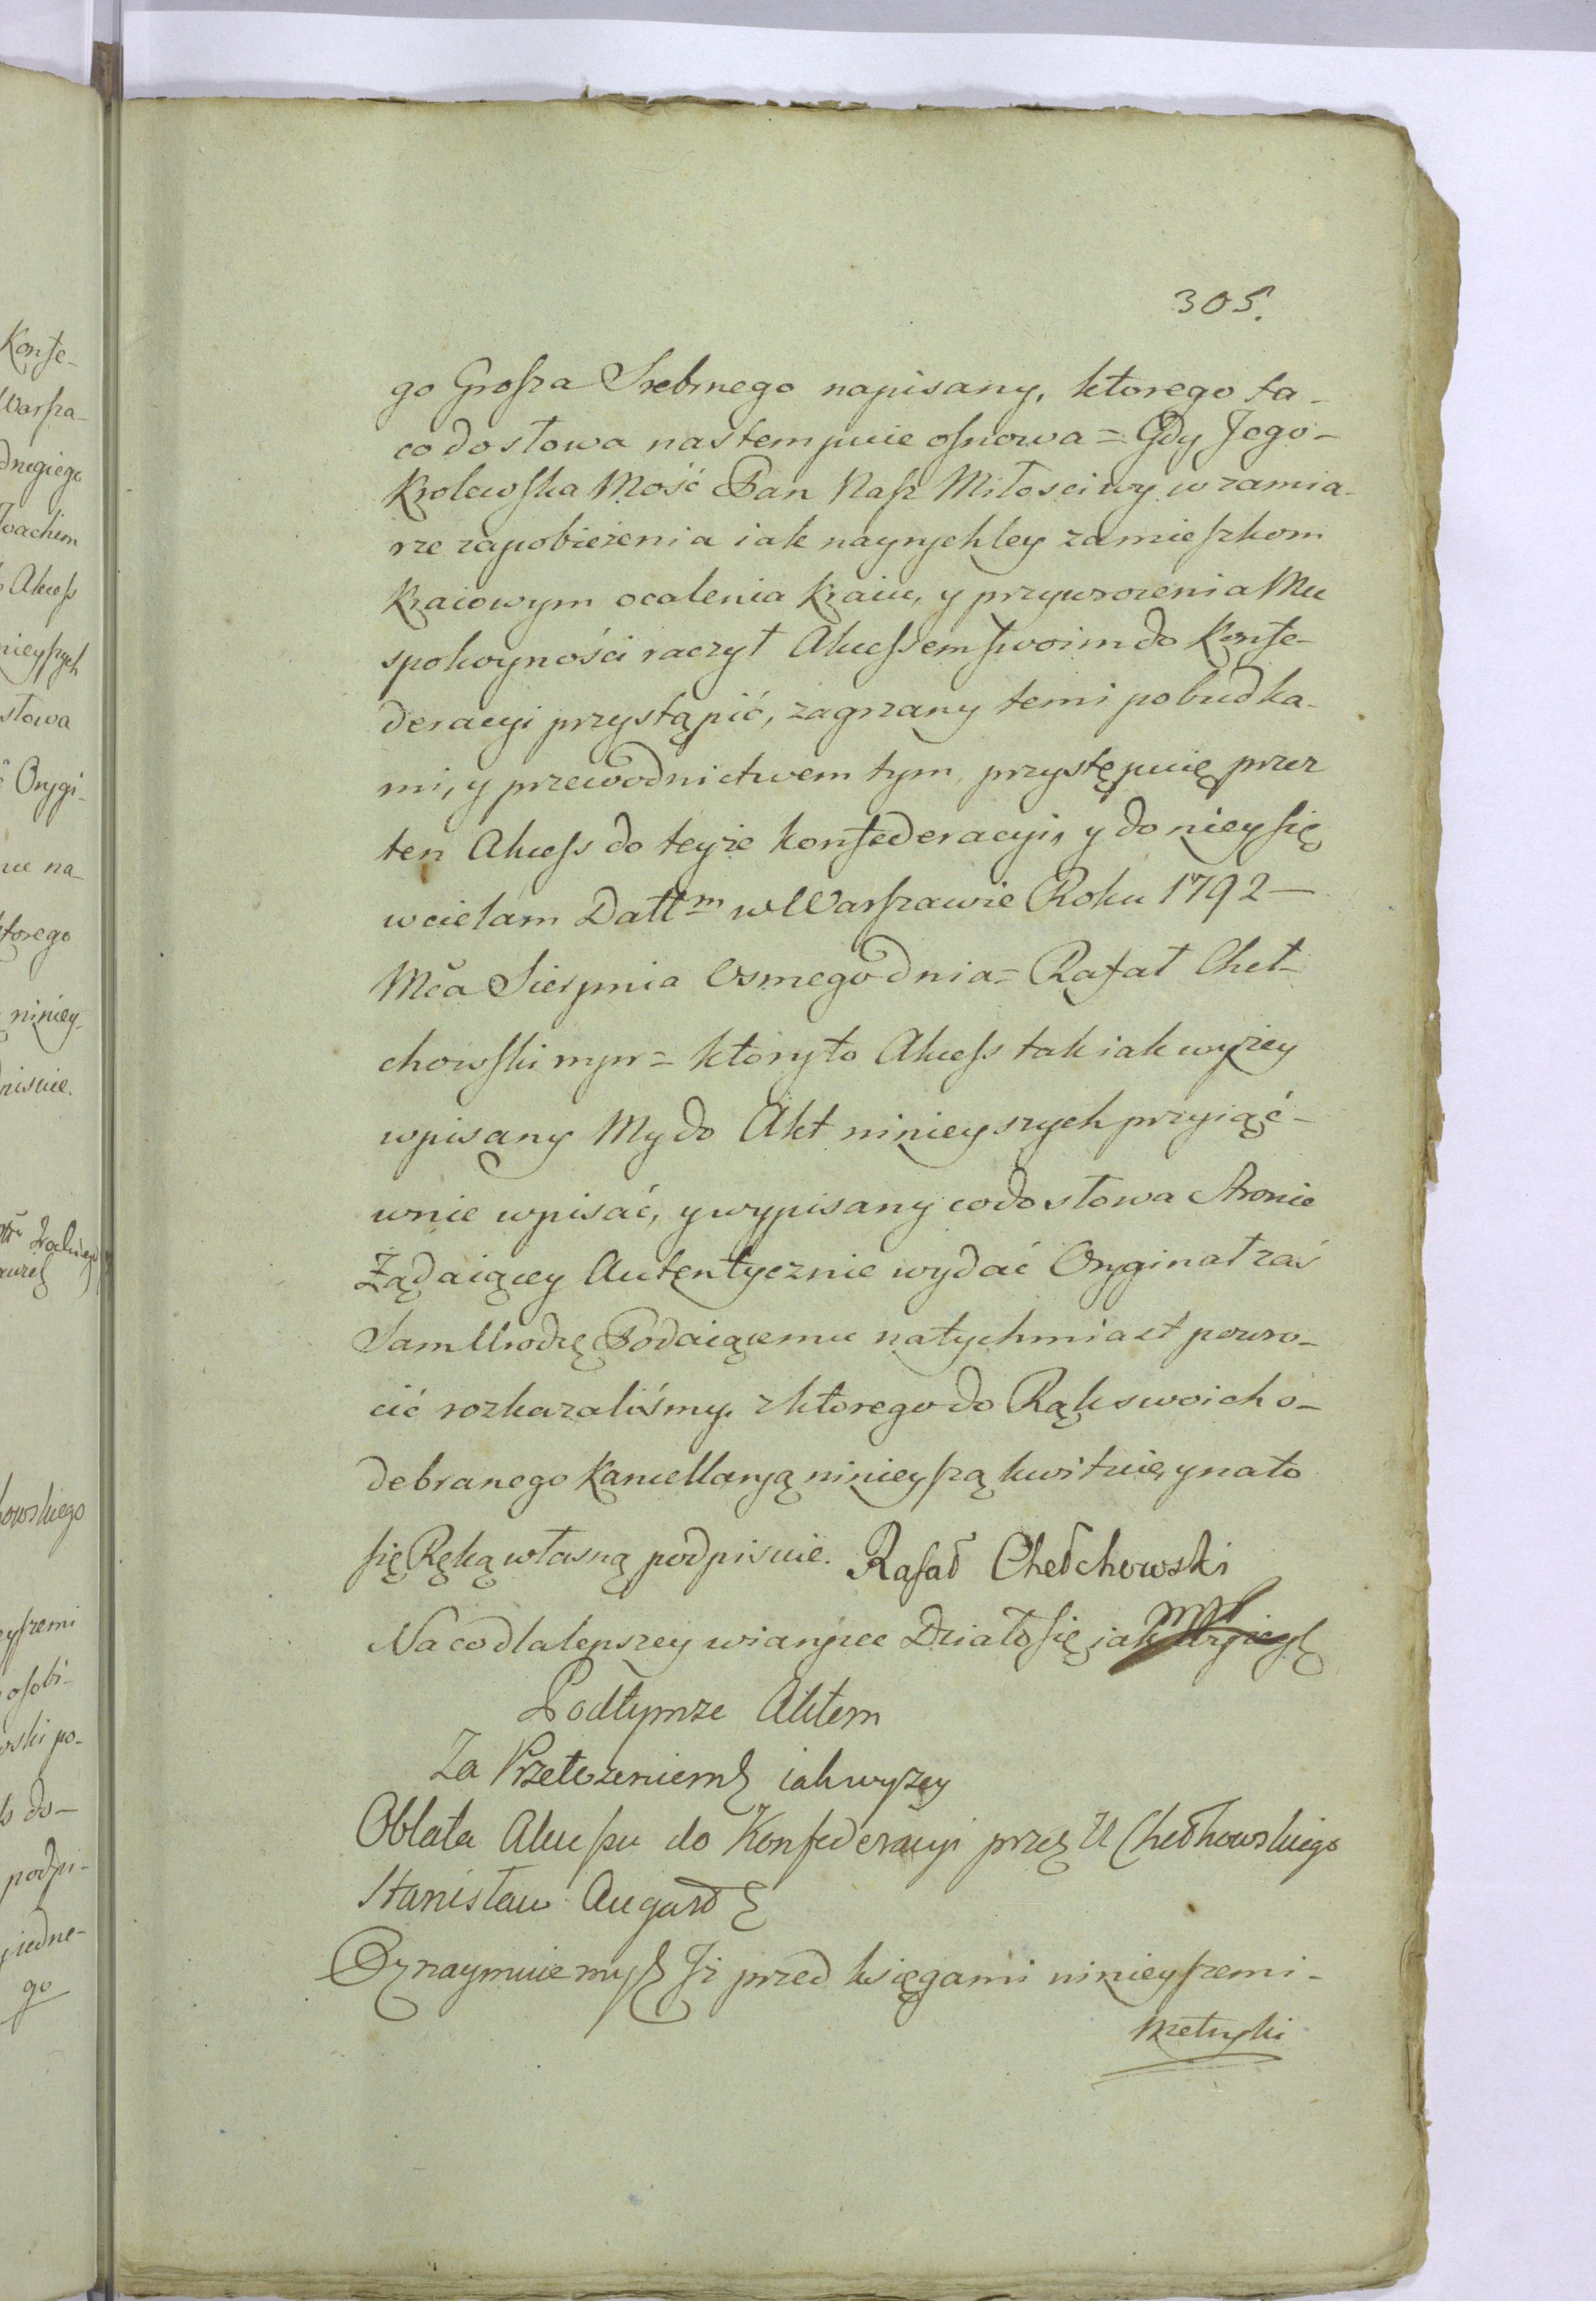 305.
go Grosza Srebrnego napisany, ktorego ta-
co do słowa nastempuie osnowa = Gdy Jego-
Krolewska Mość Pan Nasz Miłosciwy w zamia-
rze zapobieżenia iak nayrychley zamieszkom
Kraiowym ocalenia Kraiu, y przywrocenia Mu
spokoyności raczył Akcessem swoim do Konfe-
deracyi przystąpić, zagrzany temi pobudka-
mi, y przewodnictwem tym, przystępuię przez
ten Akcess do teyże konfederacyi, y do niey się
wcielam Datt m w Warszawie Roku 1792 —
Mca Sierpnia Osmego dnia = Rafał Cheł-
chowski mpr = ktory to Akcess tak iak wyżey
wpisany My do Akt ninieyszych przyiąć -
wnie wpisać, y wypisany co do słowa Stronie
Żądaiącey Autentycznie wydać Oryginał zaś
Sam Urodzę Podaiącemu natychmiast powro-
cić rozkazaliśmy. z ktorego do Rąk swoich o-
debranego Kancellaryą ninieyszą kwituię, y na to
się Ręką własną podpisuie. Rafał Chełchowski
mpr
Na co dla lepszey wiary &c Działo się jak wyżey
Pod tymże Aktem
Za Przełożeniem iak wyżey
Oblata Akcessu do Konfederacyi przez U Chełhowskiego
Stanisław August
Oznaymuiemy Iż przed księgami ninieyszemi -
Metryki